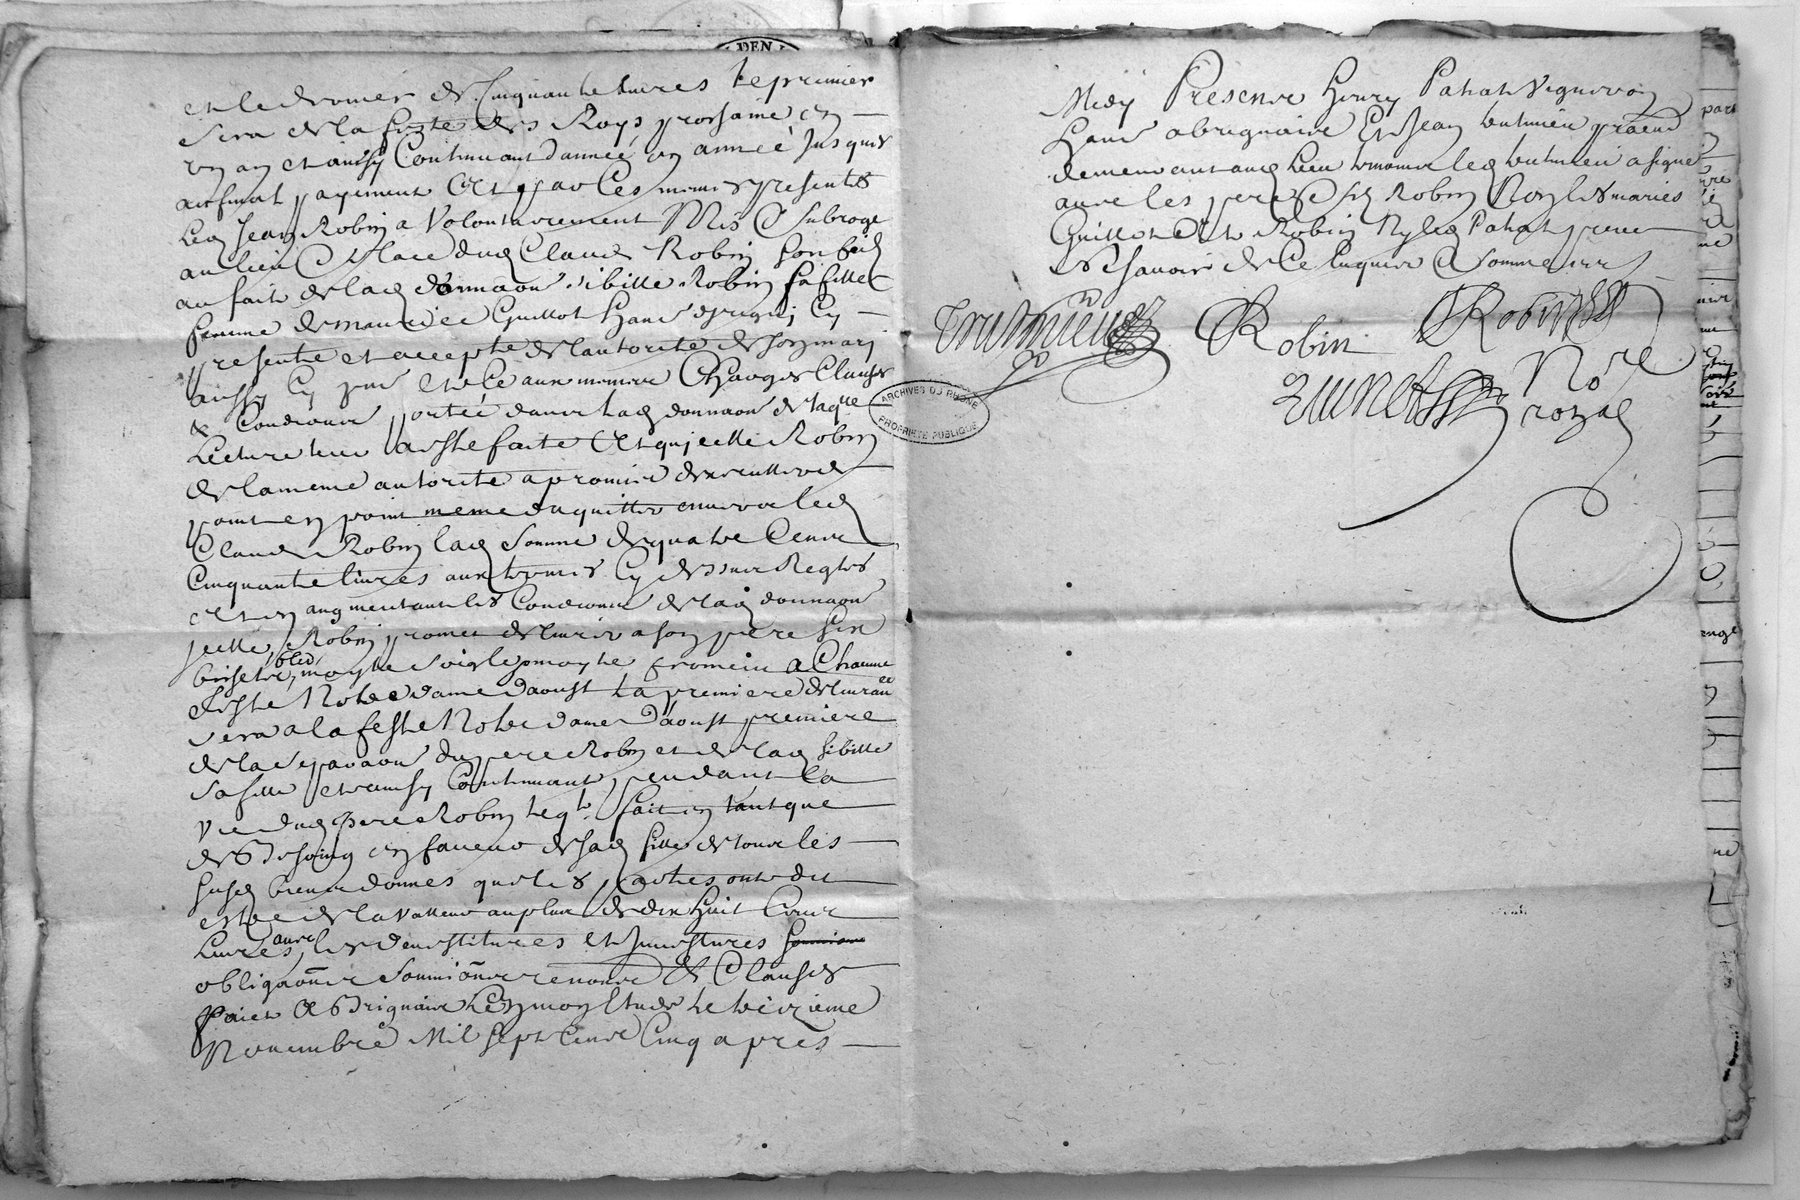 DEN
et le dernier de Cinquante livres le premier
sera de la feste des Roys prochaine en
un an et ainsy Continuant dannée en année jusques
au final payement Et par Ces memes presentes
led Jean Robin a Volontairement Mis & Subrogé
au lieu & place dud Claude Robin son fils
au fait de lad donnaon Sibille Robin sa fille
femme de maurice Guillot hant
presente et accepte de lautorité de son mari
aussy Cy pnt et ce aux memes Charges Clauses
& Conditions portée dans lad donnaon de laqlle
Lecture leur a este faite Et qu jcelle Robin
de la meme autorité a promis dexecutter de
point en point meme daquitter envers led
Claude Robin lad Somme de quatre Cents
Cinquante livres aux termes Cy dessus Reglés
Et en augmentant les Conditions de lad donnaon
jcelle Robin promet de livrer a son pere six
bichets bled, moytie seigle moytie froment a Chacune
feste Notre dame daoust la premiere delivrance
sera a la feste Notre dame daoust premiere
de la separaon du pere Robin et de lad Sibille
sa fille et ainsy Continuant pendant la
vie dud pere Robin leql fait en tant que
de Besoing en faveur de sad fille de tous les
susd biens donnés que les parties ont dit
estre de la valleur au plus de dix huit Cents
Livres, avec les devestitures et Investitures
obligaons Soumions renonce & Clauses
fait A Brignais En mon Etude le treizieme
Novembre Mil Sept Cents Cinq apres
Midy Presence Henry Patrat Vigneron
hant a brignais Et Jean trutmieu praen
demeurant aud lieu temoins led trutmieu a signé
avec les pere & fils Robin Non les maries
Guillot Et Robin Ny led Patrat pour
ne Savoir de Ce Enquis & Sommes
Trutmieu Robin Robin
Nore
royal
ARCHIVES DU RHÔNE
PROPRIÉTÉ PUBLIQUE